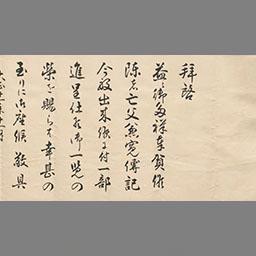 拝啓
益御多祥奉賀候
陳者亡父兼寛伝記
今般出来候ニ付一部
進呈仕候御一覧の
栄を賜らは幸甚の
至りに御座候 敬具